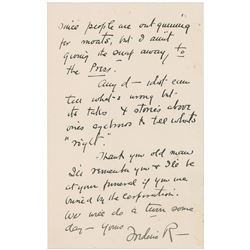 since people are out gunning
for moats, but I aint
giving the swag away to
the Press.
Any d— idiot can
tell what's wrong but
its takes & stories above
ones to tell whats
"right".
Thank you old man
I'll remember you & I'll be
at your funeral if you are
buried by the Corporation.
We will do a turn some
day — yours